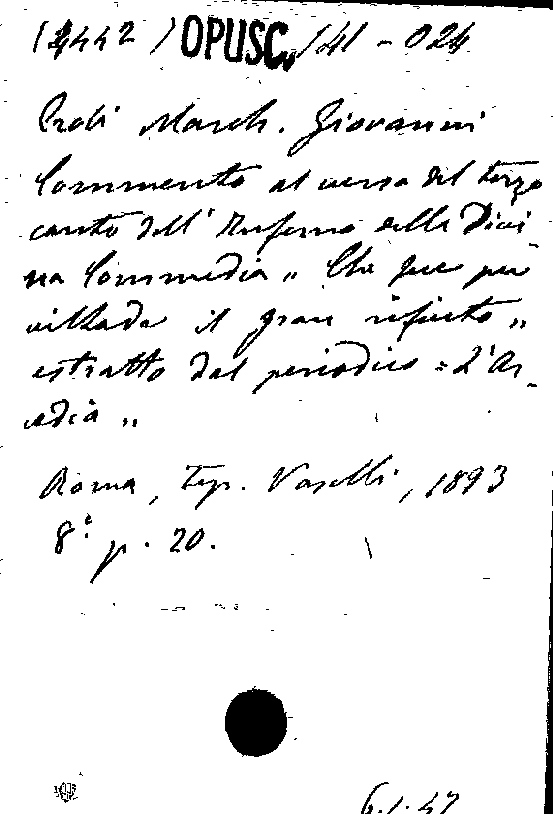 (2442) OPUSC. 141-024
Prati March. Giovanni
Commento al verso del terzo
canto dell'Inferno della Divi
na Commedia „ Che fece per
viltade il gran rifiuto „
estratto dal periodico = L'Ar_
cadia „
Roma, Tip. Vaselli, 1893
8° p. 20.
6.1.47